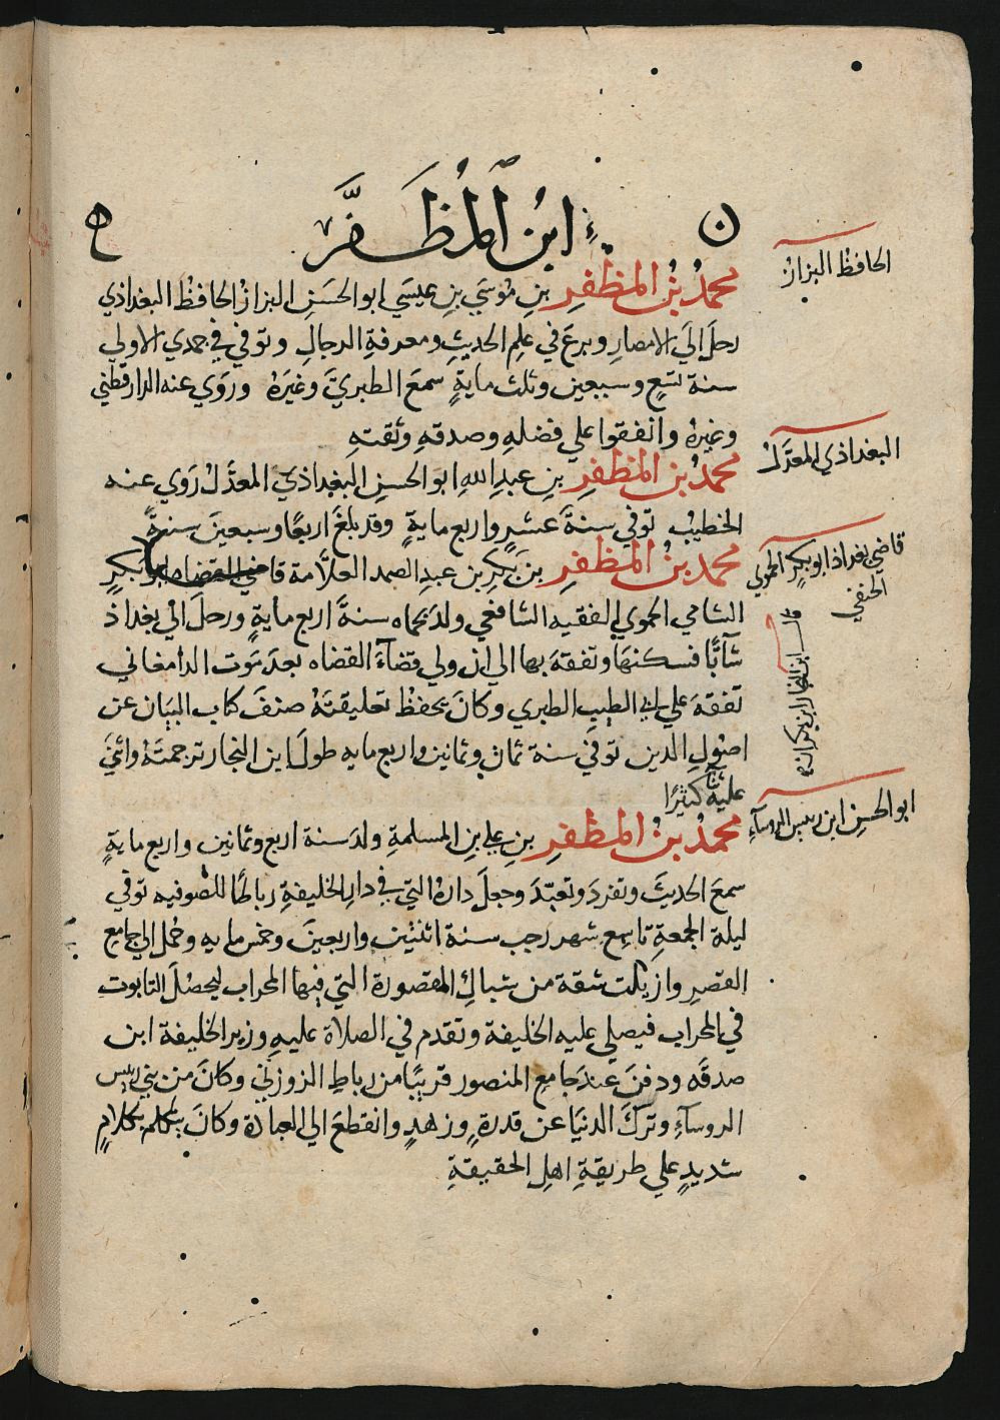 ابنُ المُظَفَّر
الحافظ البزاز
محمدُ بنُ المظفرِ بنِ مُوسَي بنِ عيسَي ابو الحسَنِ البزازُ الحافظُ البغداذي
رحلَ اليَ الامصارِ وبرعَ في علمِ الحديثِ ومعرفةِ الرجالِ وتوفي في جمدي الاولي
سنة تسَعٍ وسبعين وثلث مايةٍ سمعَ الطبريَّ وغيرَهُ وروَي عنه الدارقطني
وغيرهُ واتفقوا علي فضلهِ وصدقهِ وثقتهِ
البغداذي المعدَّلُ
محمدُ بنُ المظفرِ بنِ عبدِ اللهِ ابو الحسنِ البغداذي المعدَّلُ رَوَي عنه
الخطيبُ توفي سنةَ عشرٍ واربع مايةٍ وقد بلغَ اربعًا وسبعينَ سنةً
قاضي بغداذ ابو بكرٍ الحموي
الحنفي
محمدُ بنُ المظفرِ بنِ بَكرِ بن عبدِ الصمد العلاَّمة قاضي القضاه ابو بكرٍ
الشامي الحموي الفقيه الشافعي ولدَ بحماه سنةَ اربع مايةٍ ورحلَ اليَ بغداذ
شآبًّا فسكنهَا وتفقهَ بها الي ان ولي قضآءَ القضاه بعدَ مَوت الدامغاني
تفقهَ علي ابي الطيبِ الطبري وكانَ يحفظُ تعليقتَهُ صنفَ كتاب البيَان عن
اصُولِ الدين توفيَ سنة ثمان وثمانين واربع مايه طولَ ابن النجار ترجمتَهُ واثنيَ
عليهِ كثيرًا
ابو الحسنِ ابن رييس الروسآءِ
محمدُ بنُ المظفرِ بنِ علي بنِ المسلمةِ ولدَ سنة اربع وثمانين واربع مايةٍ
سمعَ الحديثَ وتفردَ وتعبّدَ وجعلَ دارهُ التيَ في دارِ الخليفةِ رباطًا للصُوفيه توفي
ليلة الجمعةِ تاسِع شهر رَجب سنة اثنتين واربعينَ وخمس مايه وحُمل الي جامع
القصرِ وازيلت شقة من شباكِ المقصورة التي فيها المحراب ليحصُلَ التابوت
في المحراب فيصلي عليه الخليفة وتقدم في الصلاة عليهِ وزير الخليفة ابن
صدقَه ودفنَ عندَ جامعِ المنصور قريبًا من رباطِ الزوزني وكانَ من بني رييس
الروسآءِ وتركَ الدنيَا عن قدرةٍ وزهدٍ وانقطعَ الي العبادة وكانَ يتكلم بكلامٍ
شديدٍ علي طريقةِ اهلِ الحقيقةِ